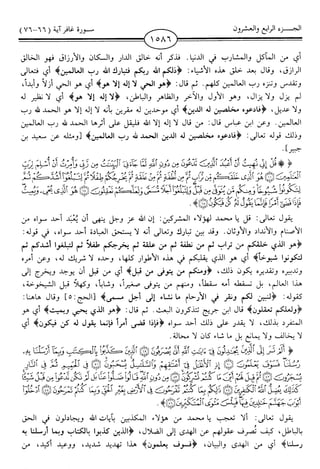 الجـــزء الرابع والعشرون
سـورة غافر آية ( ٦٦-٧٦)
١٥٨٦
أي من المآكل والمشارب في الدنيا. فذكر أنه خالق الدار والسكان والأرزاق فهو الخالق
الرازق، وقال بعد خلق هذه الأشياء: ﴿ذلكم الله ربكم فتبارك الله رب العالمين﴾ أي فتعالى
وتقدس وتنزه رب العالمين كلهم. ثم قال: ﴿هو الحي لا إله إلا هو﴾ أي هو الحي أزلاً وأبداً،
لم يزل ولا يزال، وهو الأول والآخر والظاهر والباطن، ﴿لا إله إلا هو﴾ أي لا نظير له
ولا عديل، ﴿فادعوه مخلصين له الدين﴾ أي موحدين له مقرين بأنه لا إله إلا هو الحمد لله رب
العالمين. وعن ابن عباس قال: من قال لا إله إلا الله فليقل على أثرها الحمد لله رب العالمين
وذلك قوله تعالى: ﴿فادعوه مخلصين له الدين الحمد لله رب العالمين﴾ [ومثله عن سعيد بن
جبير].
﴿ قُلْ إِنِّي نُهِيتُ أَنْ أَعْبُدَ الَّذِينَ تَدْعُونَ مِن دُونِ اللَّهِ لَمَّا جَاءَنِيَ الْبَيِّنَاتُ مِن رَّبِّي وَأُمِرْتُ أَنْ أُسْلِمَ لِرَبِّ
الْعَالَمِينَ هُوَ الَّذِي خَلَقَكُم مِّن تُرَابٍ ثُمَّ مِن نُّطْفَةٍ ثُمَّ مِنْ عَلَقَةٍ ثُمَّ يُخْرِجُكُمْ طِفْلًا ثُمَّ لِتَبْلُغُوا أَشُدَّكُمْ ثُمَّ
لِتَكُونُوا شُيُوخًا وَمِنكُم مَّن يُتَوَفَّى مِن قَبْلُ وَلِتَبْلُغُوا أَجَلًا مُّسَمًّى وَلَعَلَّكُمْ تَعْقِلُونَ هُوَ الَّذِي يُحْيِي وَيُمِيتُ
فَإِذَا قَضَى أَمْرًا فَإِنَّمَا يَقُولُ لَهُ كُن فَيَكُونُ ﴾
يقول تعالى: قل يا محمد لهؤلاء المشركين: إن الله عز وجل ينهى أن يُعبَد أحد سواه من
الأصنام والأنداد والأوثان. وقد بين تبارك وتعالى أنه لا يستحق العبادة أحد سواه، في قوله:
﴿هو الذي خلقكم من تراب ثم من نطفة ثم من علقة ثم يخرجكم طفلاً ثم لتبلغوا أشدكم ثم
لتكونوا شيوخاً﴾ أي هو الذي يقلبكم في هذه الأطوار كلها، وحده لا شريك له، وعن أمره
وتدبيره وتقديره يكون ذلك، ﴿ومنكم من يتوفى من قبل﴾ أي من قبل أن يوجد ويخرج إلى
هذا العالم، بل تسقطه أمه سقطاً، ومنهم من يتوفى صغيراً، وشاباً، وكهلاً قبل الشيخوخة،
كقوله: ﴿لنبين لكم ونقر في الأرحام ما نشاء إلى أجل مسمى﴾ [الحج:٥] وقال هاهنا:
﴿ولعلكم تعقلون﴾ قال ابن جريج تتذكرون البعث. ثم قال: ﴿هو الذي يحيي ويميت﴾ أي هو
المتفرد بذلك، لا يقدر على ذلك أحد سواه ﴿فإذا قضى أمراً فإنما يقول له كن فيكون﴾ أي
لا يخالف ولا يمانع بل ما شاء كان لا محالة.
﴿ أَلَمْ تَرَ إِلَى الَّذِينَ يُجَادِلُونَ فِي آيَاتِ اللَّهِ أَنَّى يُصْرَفُونَ الَّذِينَ كَذَّبُوا بِالْكِتَابِ وَبِمَا أَرْسَلْنَا بِهِ
رُسُلَنَا فَسَوْفَ يَعْلَمُونَ إِذِ الْأَغْلَالُ فِي أَعْنَاقِهِمْ وَالسَّلَاسِلُ يُسْحَبُونَ فِي الْحَمِيمِ ثُمَّ فِي النَّارِ
يُسْجَرُونَ ثُمَّ قِيلَ لَهُمْ أَيْنَ مَا كُنتُمْ تُشْرِكُونَ مِن دُونِ اللَّهِ قَالُوا ضَلُّوا عَنَّا بَل لَّمْ نَكُن نَّدْعُو مِن قَبْلُ شَيْئًا
كَذَلِكَ يُضِلُّ اللَّهُ الْكَافِرِينَ ذَلِكُم بِمَا كُنتُمْ تَفْرَحُونَ فِي الْأَرْضِ بِغَيْرِ الْحَقِّ وَبِمَا كُنتُمْ تَمْرَحُونَ ادْخُلُوا
أَبْوَابَ جَهَنَّمَ خَالِدِينَ فِيهَا فَبِئْسَ مَثْوَى الْمُتَكَبِّرِينَ ﴾
يقول تعالى: ألا تعجب يا محمد من هؤلاء المكذبين بآيات الله ويجادلون في الحق
بالباطل، كيف تُصرف عقولهم عن الهدى إلى الضلال، ﴿الذين كذبوا بالكتاب وبما أرسلنا به
رسلنا﴾ أي من الهدى والبيان، ﴿فسوف يعلمون﴾ هذا تهديد شديد، ووعيد أكيد، من